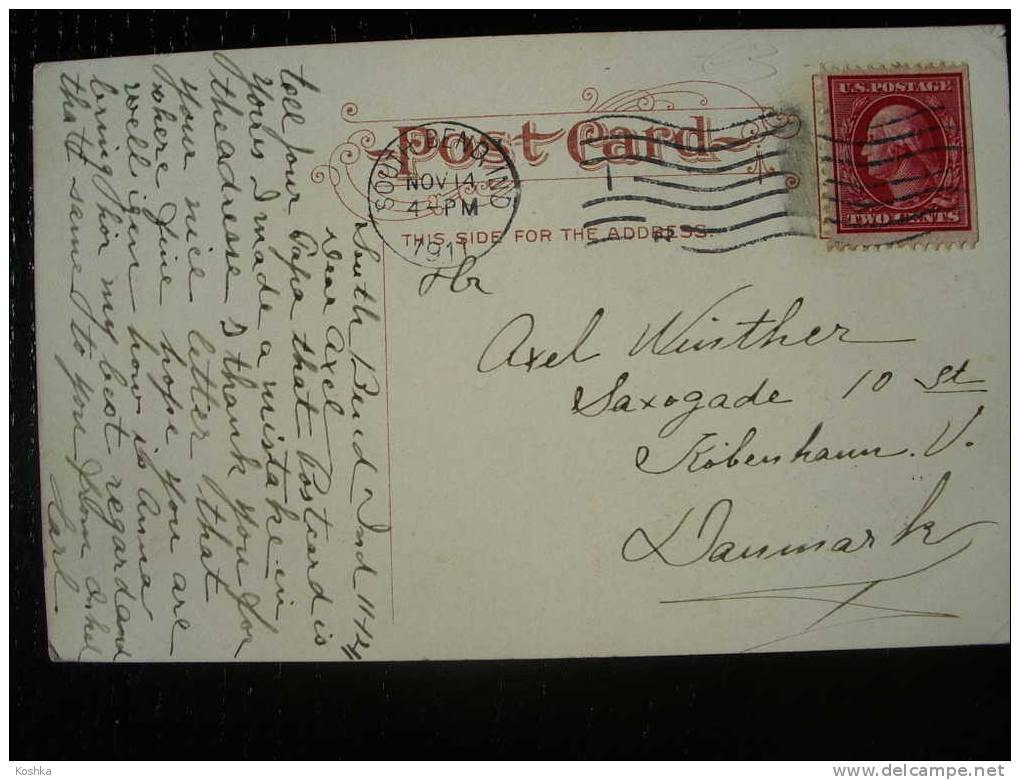 Post Card
THIS SIDE FOR THE ADDRESS
SOUTH BEND, IND
NOV 14
4 PM
1911
U.S. POSTAGE
TWO CENTS
Hr
Axel Winther
Saxogade 10 st
Köbenhavn. V.
Danmark
South Bend Ind 11-12-11
Dear Axel
tell your Papa that Postcard is
Yours I made a mistake in
the adresse I thank you for
your nice letter that
where fine hope you are
well igen how is Anna
bring hior my best regard and
thatt same to you from Onkel
Carl
Koshka